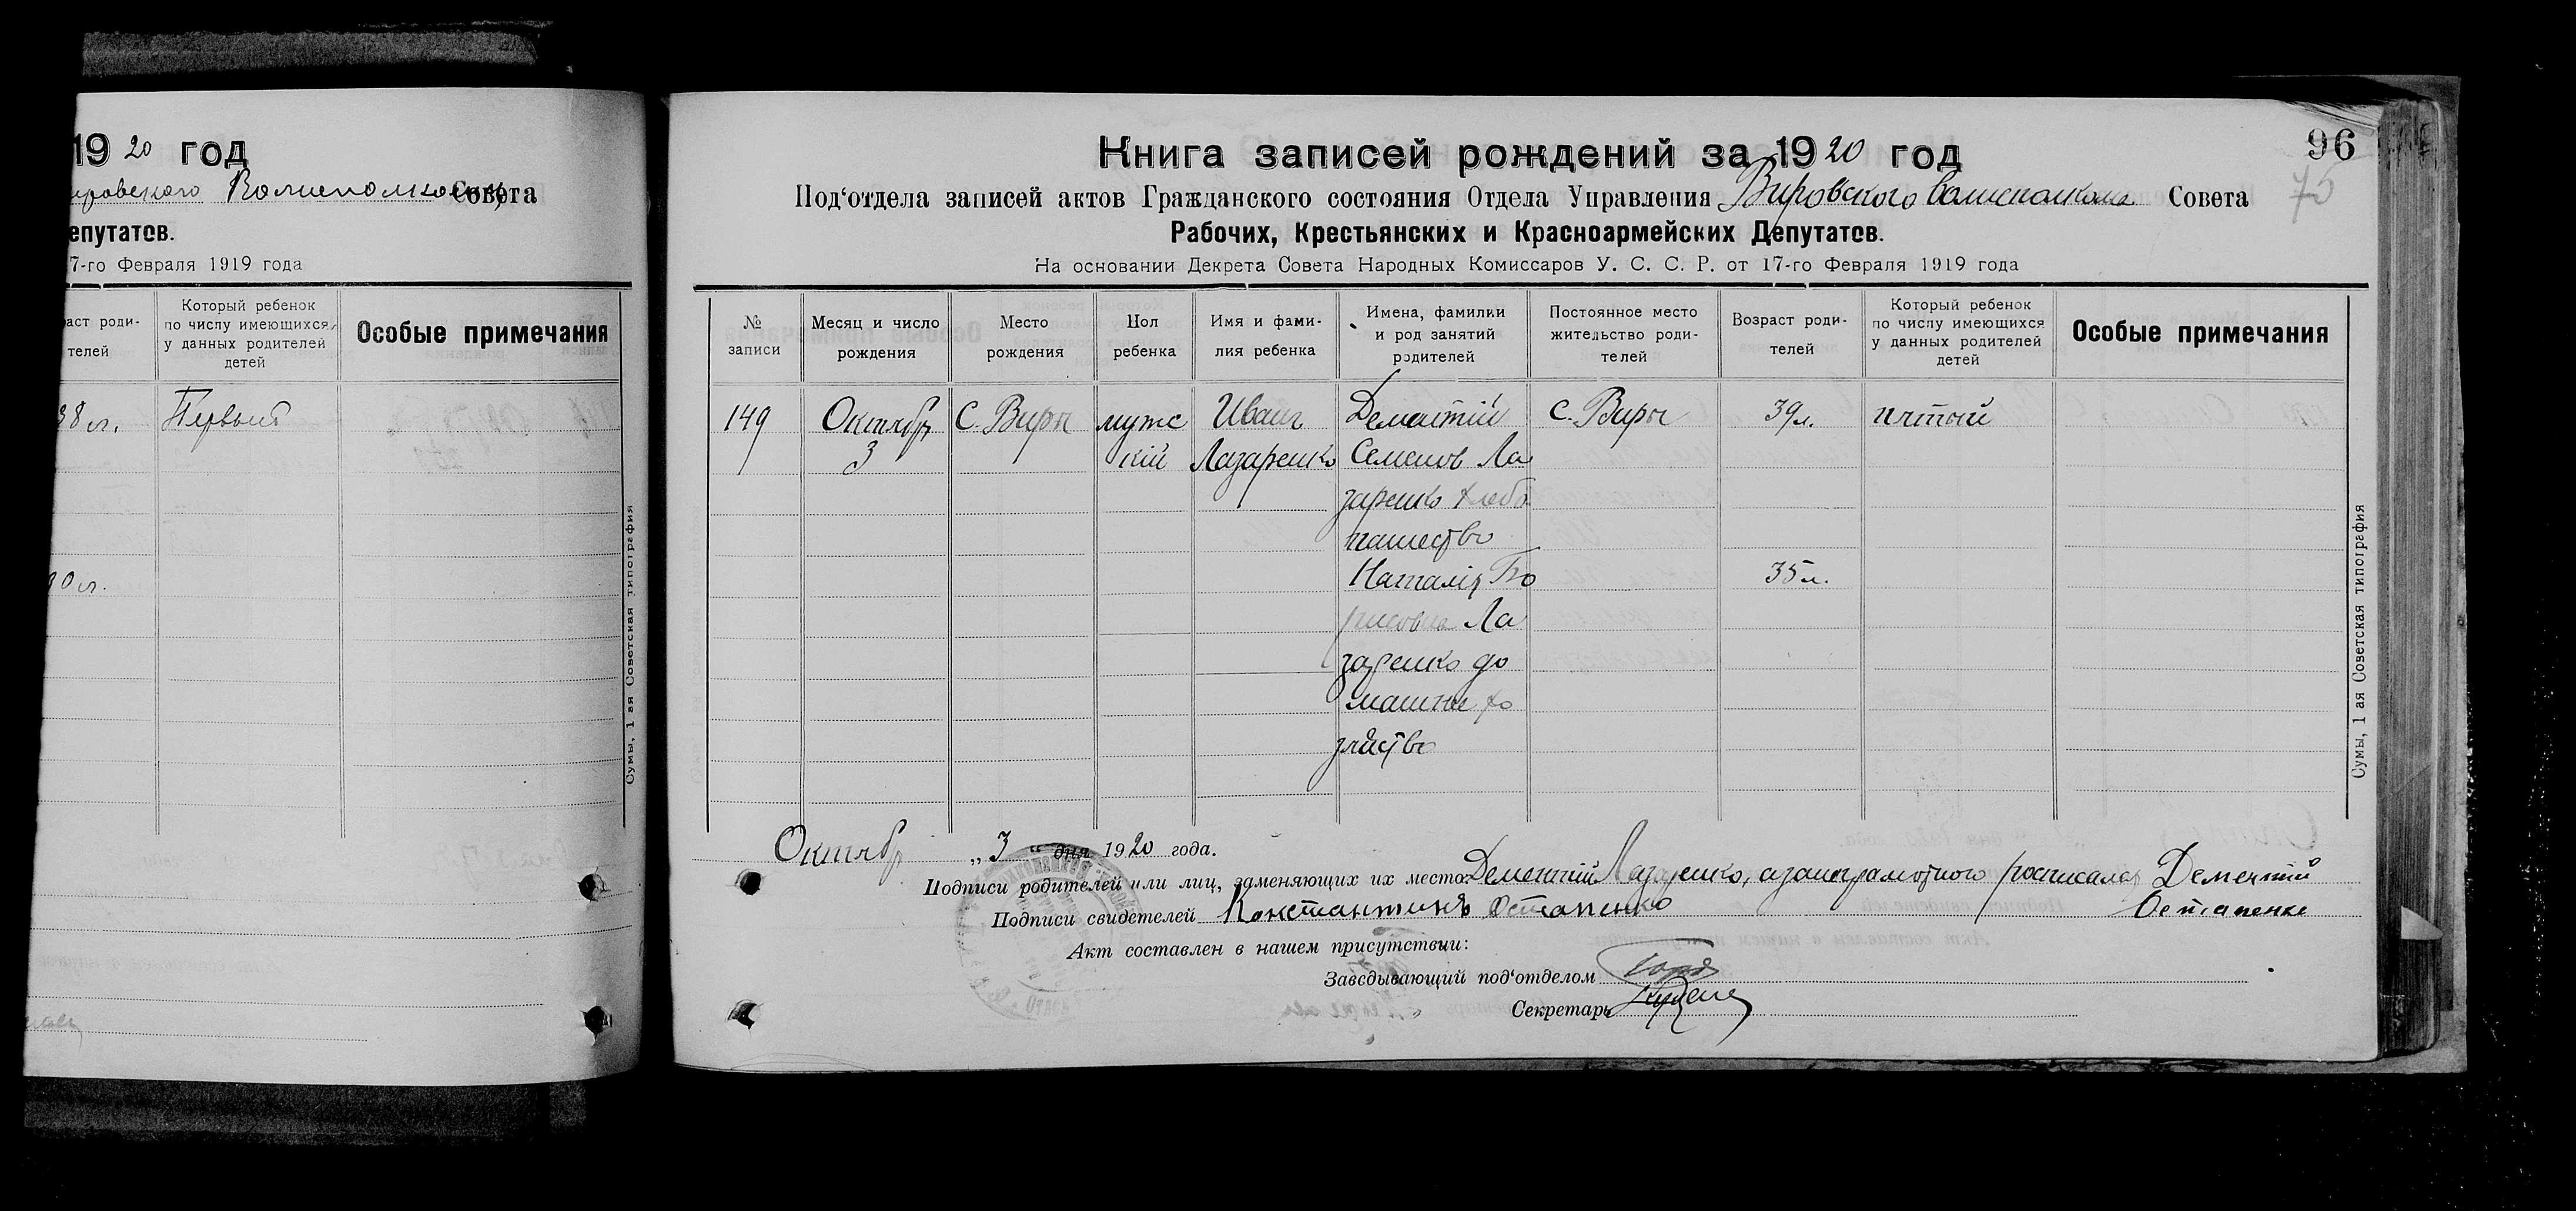 1920 год
Совета
епутатов.
7-го Февраля 1919 года
аст роди-
телей
Который ребенок
по числу имеющихся
у данных родителей
детей
Особые примечания
38 л.
Первый
Сумы, 1 ая Советская типография
Книга записей рождений за 1920 год
96
75
Под‘отдела записей актов Гражданского состояния Отдела Управления Вировского Волисполкома Совета
Рабочих, Крестьянских и Красноармейских Депутатов.
На основании Декрета Совета Народных Комиссаров У. С. С. Р. от 17-го Февраля 1919 года
№
записи
Месяц и число
рождения
Место
рождения
Пол
ребенка
Имя и фами-
лия ребенка
Имена, фамилии
и род занятий
родителей
Постоянное место
жительство роди-
телей
Возраст роди-
телей
Который ребенок
по числу имеющихся
у данных родителей
детей
Особые примечания
149
Октябрь
3
С. Виры
мужс
кій
Иван
Лазаренко
Дементій
Семенов Ла
заренко хлебо
пашество
Наталія Бо
рисовна Ла
заренко до
машнее хо
зяйство
С. Виры
39 л.
35 л.
пятый
Сумы, 1 ая Советская типография
Октябр „3“ дня 1920 года.
Подписи родителей или лиц, заменяющих их место: Дементій Лазаренко, а за неграмотного росписался Дементій
Остапенко
Подписи свидетелей Константинъ Остапенко
Акт составлен в нашем присутствии:
Заведывающий под‘отделом
Секретарь